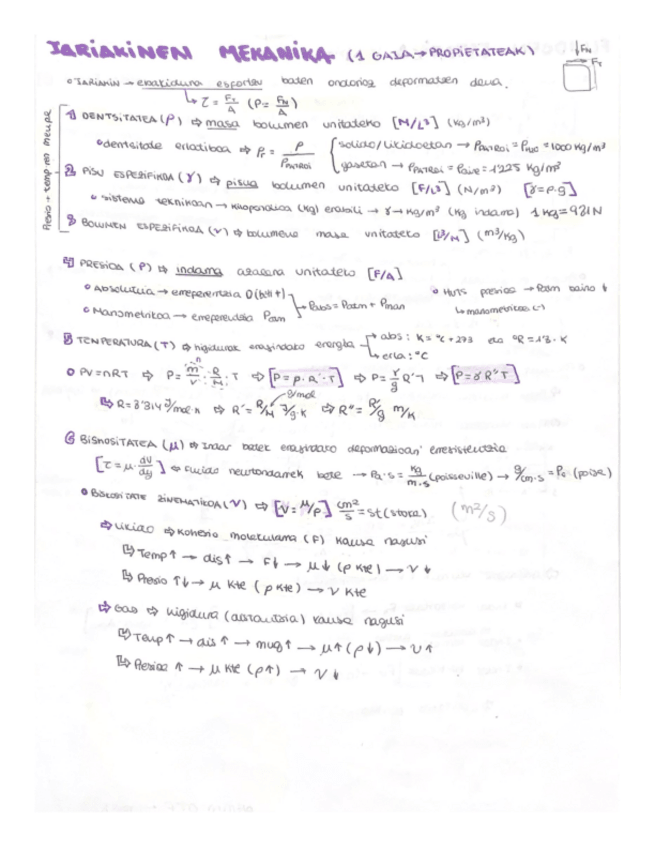 JARIAKINEN MEKANIKA (1 GAIA → PROPIETATEAK)
↓FN
→ Fτ
• JARIAKIN → ebakidura esfortzu baten ondorioz deformatzen dena.
↳ τ = Fτ/A (P = FN/A)
Presio + temp-ren menpe
1) DENTSITATEA (ρ) ⇨ masa bolumen unitateko [M/L³] (kg/m³)
• dentsitate erlatiboa → ρr = ρ/ρPATROI { solido/likidoetan → ρPATROI = ρH₂O = 1000 kg/m³
gasetan → ρPATROI = ρaire = 1'225 kg/m³
2) PISU ESPEZIFIKOA (γ) ⇨ pisua bolumen unitateko [F/L³] (N/m³) [γ = ρ·g]
• sistema teknikoan → kilopondioa (kg) erabili → γ → kg/m³ (kg indarra) 1 kg = 9'81 N
3) BOLUMEN ESPEZIFIKOA (v) ⇨ bolumena masa unitateko [L³/M] (m³/kg)
4) PRESIOA (P) ⇨ indarra azalera unitateko [F/A]
• Absolutua → erreferentzia 0 (beti +)
• Manometrikoa → erreferentzia Patm
→ Pabs = Patm + Pman
• HUTS presioa → Patm baino ↓
↳ manometrikoa (-)
5) TENPERATURA (T) ⇨ higidurak eragindako energia → abs: K = °C + 273 eta °R = 1'8 · K
→ erla: °C
• PV = nRT ⇨ P = m/V · R/M · T ⇨ [P = ρ · R' · T] ⇨ P = γ/g R' T ⇨ [P = γ R'' T]
↳ R = 8'314 J/mol·K ⇨ R' = R/M J/g·K ⇨ R'' = R'/g m/K
g/mol
6) BISKOSITATEA (μ) ⇨ indar batek eragindako deformazioari erresistentzia
[τ = μ · dV/dy] ⇨ fluido newtondarrek bete → Pa·s = kg/m·s (poisseville) → g/cm·s = Po (poise)
• BISKOSITATE ZINEMATIKOA (ν) ⇨ [ν = μ/ρ] cm²/s = St (stoke) (m²/s)
⇨ Likido ⇨ kohesio molekularra (F) kausa nagusi
↳ Temp ↑ → dis ↑ → F ↓ → μ ↓ (ρ kte) → ν ↓
↳ Presio ↑↓ → μ kte (ρ kte) → ν kte
⇨ Gas ⇨ higidura (abiadura) kausa nagusi
↳ Temp ↑ → dis ↑ → mug ↑ → μ ↑ (ρ ↓) → ν ↑
↳ Presioa ↑ → μ kte (ρ ↑) → ν ↓